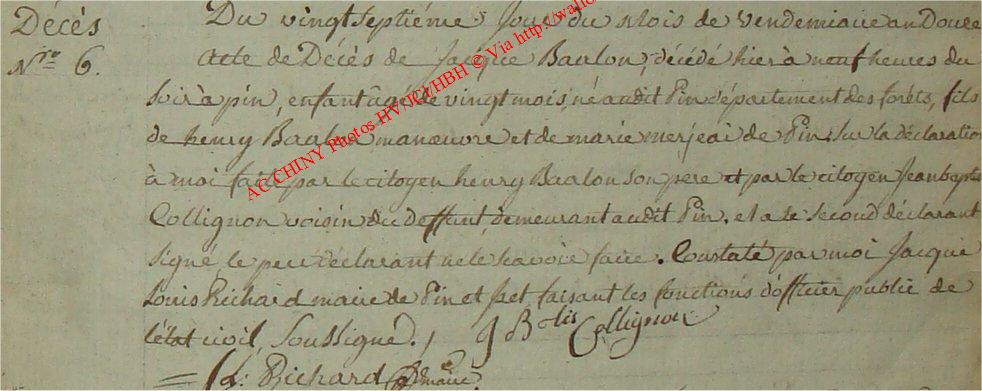 Décès
Nro 6.
Du vingt Septiéme Jour du Mois de vendemiaire an Douze
Acte de Décès de Jacque Baalon, décédé hier à neuf heures du
Soir à pin, enfant âgé de vingt mois, né audit Pin département des forêts, fils
de henry Baalon manœuvre et de marie merjeai de Pin. Sur la déclaration
à moi faite par le citoyen henry Baalon son pere et par le citoyen Jean bapte
Collignon voisin du deffunt, demeurant audit Pin. et a le second déclarant
signé, le peré déclarant ne le scavoir faire. Constaté par moi Jacque
Louis Richard maire de Pin et faisant les fonctions d'officier public de
l'état civil, Soussigné.
J Btis Collignon
L: Richard maire.
AC CHINY Photos HV/JCL/HBH © Via http://wallo